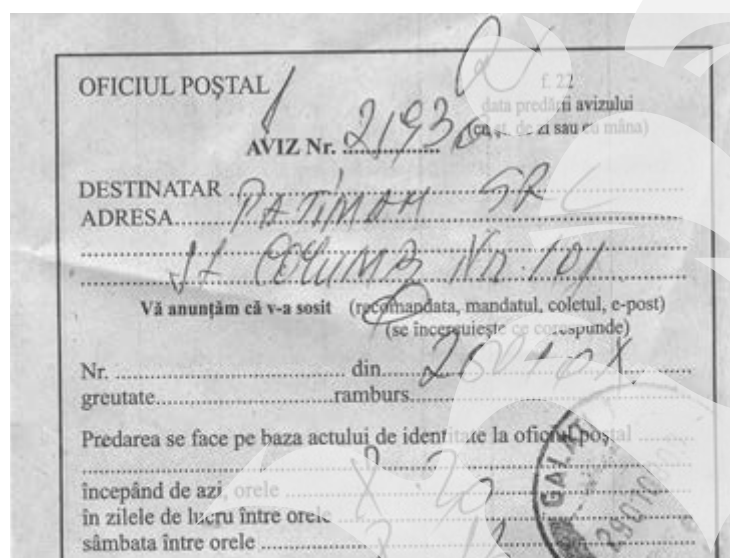 OFICIUL POȘTAL
f. 22
data predării avizului
AVIZ Nr. 21930
DESTINATAR
ADRESA PATIMOM SRL
COLUMB Nr. 101
Vă anunțăm că v-a sosit (recomandata, mandatul, coletul, e-post)
(se încercuiește ce corespunde)
Nr. din
greutate ramburs
Predarea se face pe baza actului de identitate la oficiul poștal
începând de azi, orele
în zilele de lucru între orele
sâmbata între orele
GALAȚI